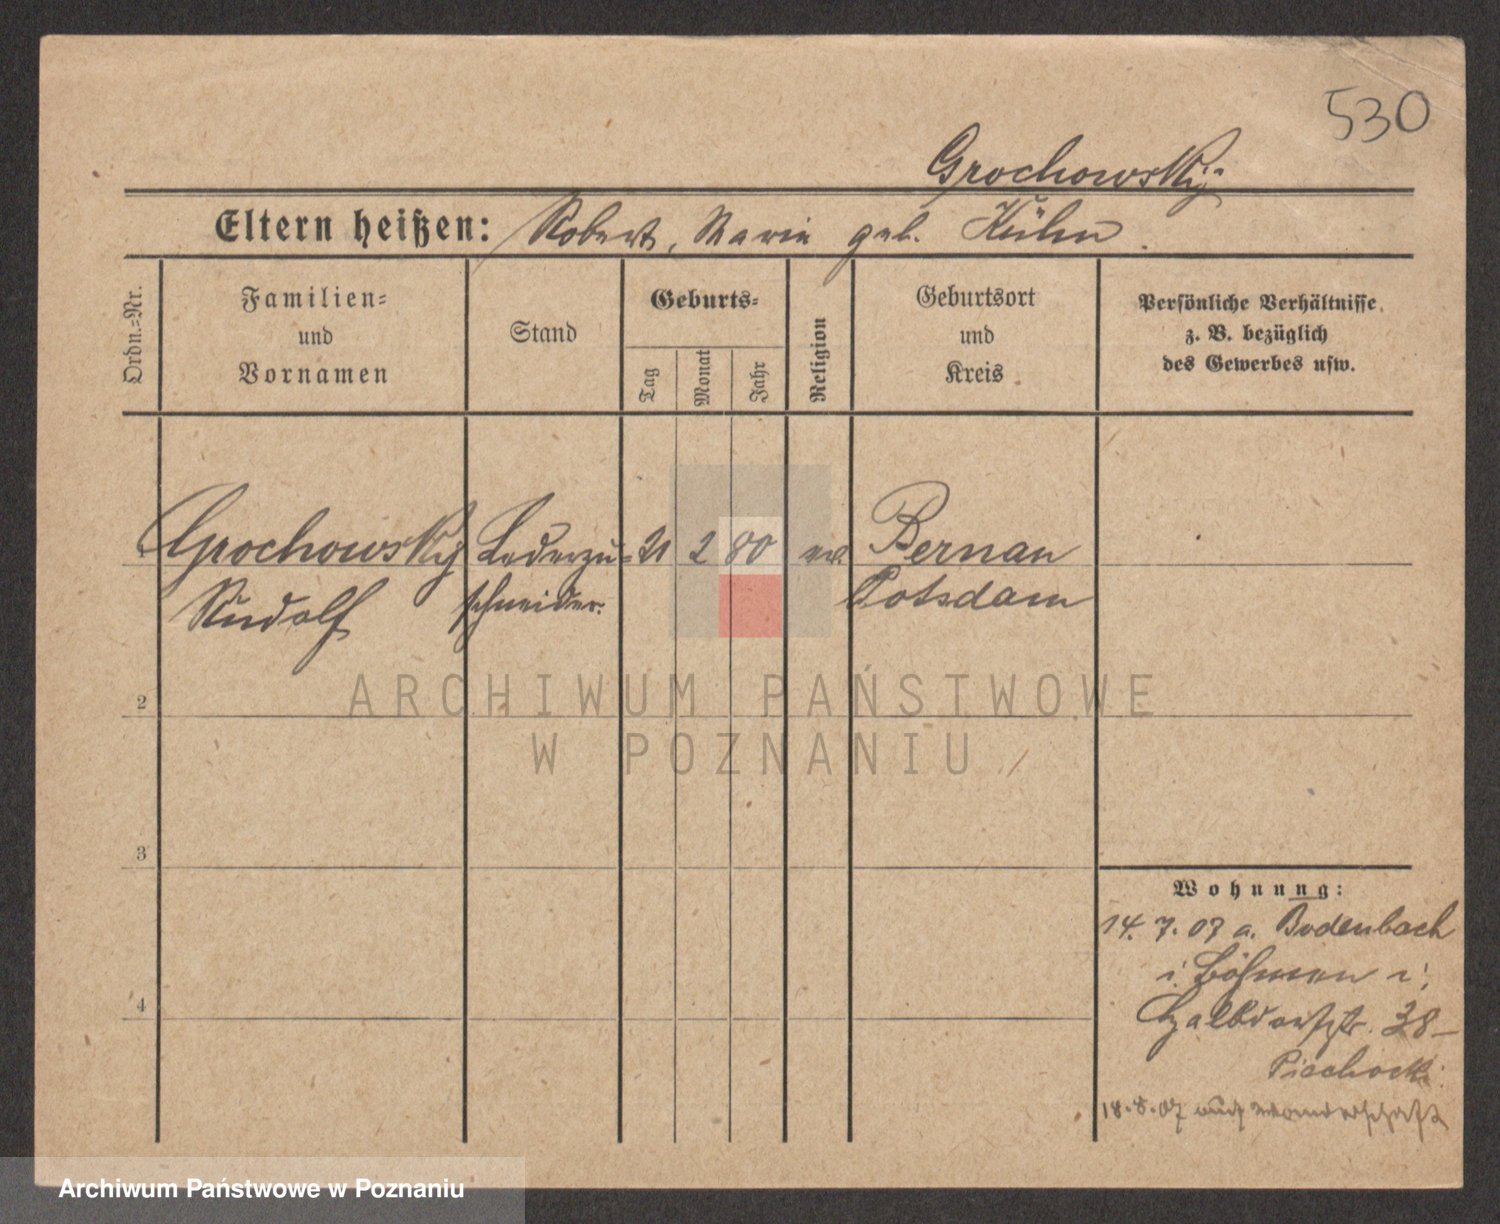 530
Grochowsky
Eltern heißen: Robert, Marie geb. Kühn.
Ordn.=Nr.
Familien=
und
Vornamen
Stand
Geburts=
Tag
Monat
Jahr
Religion
Geburtsort
und
Kreis
Persönliche Verhältnisse
z. B. bezüglich
des Gewerbes usw.
Grochowsky Lederzu= 21 2 80 ev. Bernau
Rudolf schneider. Potsdam
2
3
4
Wohnung:
14. 7. 07 a. Bodenbach
i. Böhmen i.
Halbdorfstr. 38
Piechocki
18.8.07 auf Wanderschaft
ARCHIWUM PAŃSTWOWE
W POZNANIU
Archiwum Państwowe w Poznaniu